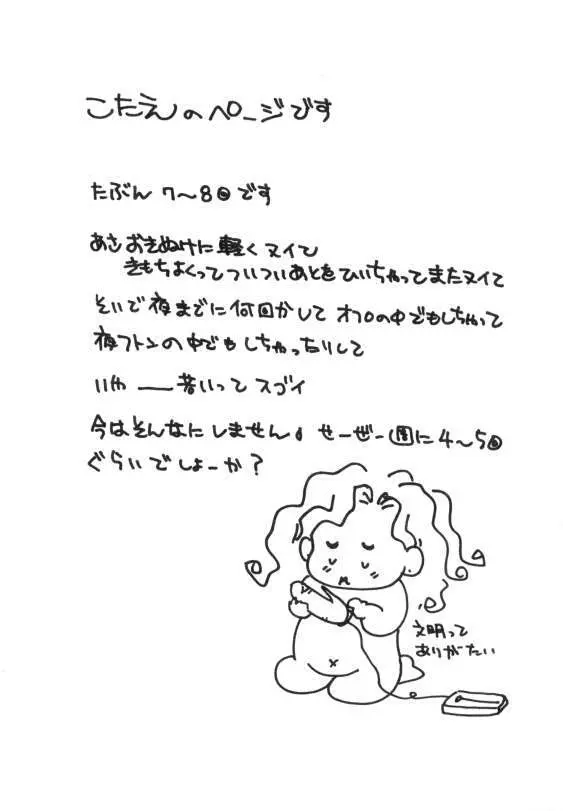 こたえのページです
たぶん 7〜8回です
あさ おきぬけに 軽く ヌイて
きもちよくって ついつい あとを ひいちゃって また ヌイて
そいで 夜までに 何回かして オフロの中でもしちゃって
夜フトンの中でも しちゃったりして
いや ――若いって スゴイ
今はそんなに しません。 せーぜー 週に 4〜5回
ぐらいで しょーか?
文明って
ありがたい